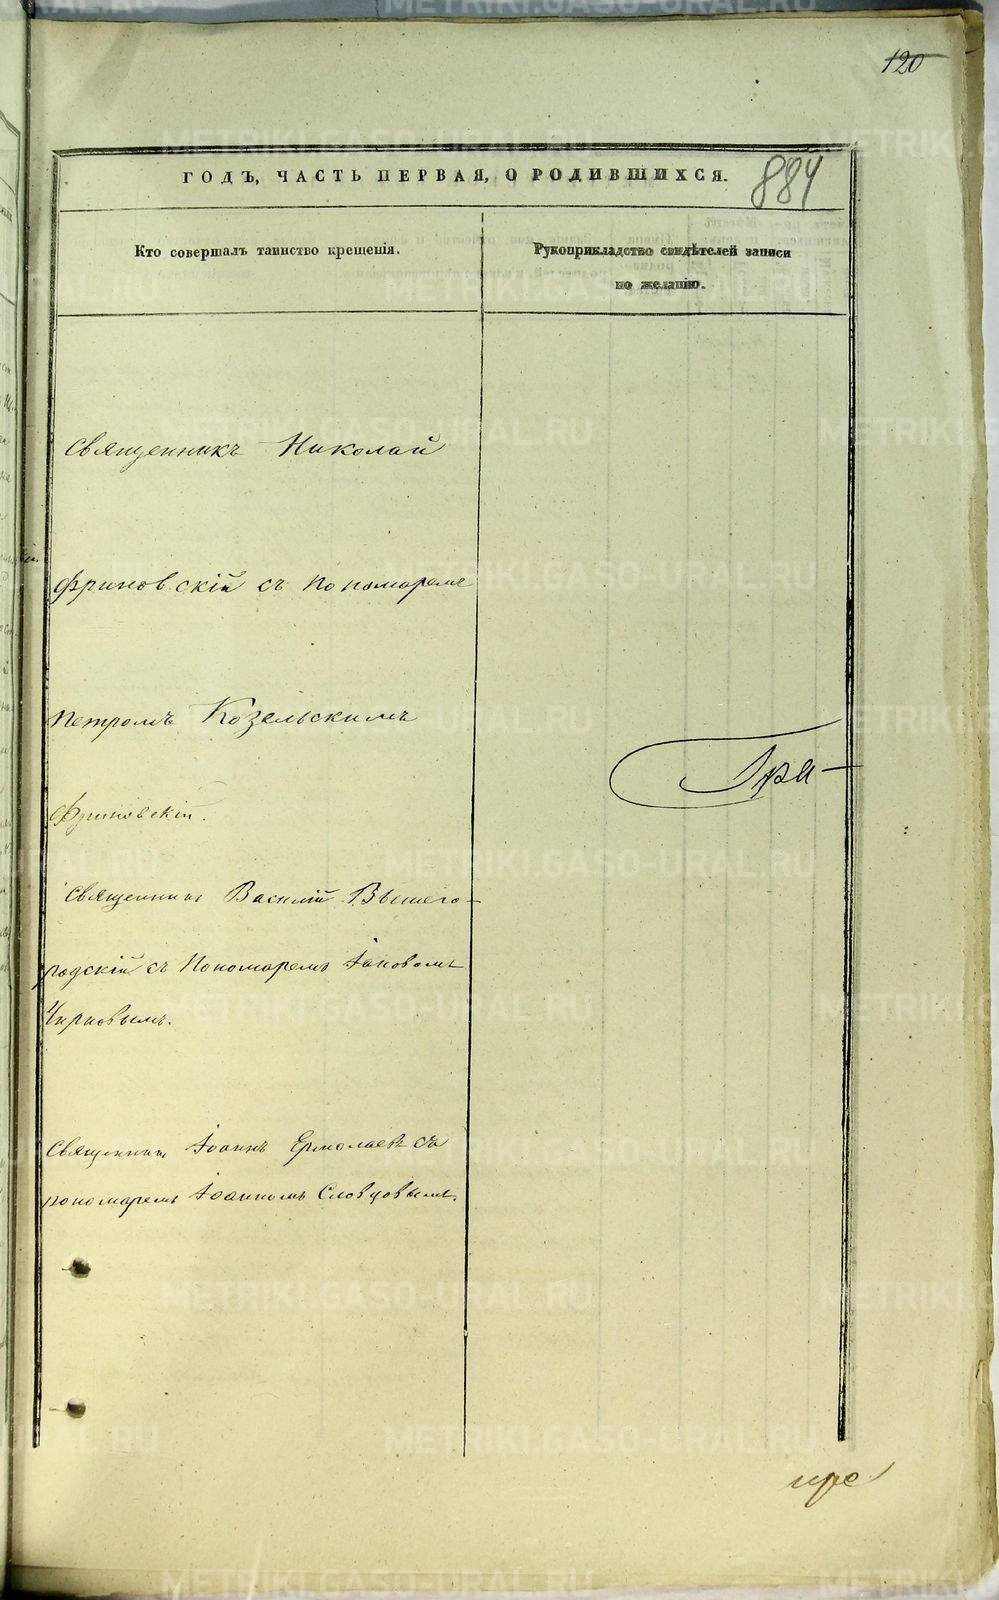 120
884
ГОДЪ, ЧАСТЬ ПЕРВАЯ, О РОДИВШИХСЯ.
Кто совершалъ таинство крещенія.
Рукоприкладство свидѣтелей записи
по желанію.
Священникъ Николай
Фриновскій съ Пономаремъ
Петромъ Козельскимъ
Фриновскій.
Священникъ Василій Вышего-
родскій съ Пономаремъ Іаковомъ
Чирковымъ.
Священникъ Іоаннъ Ермолаевъ съ
пономаремъ Іоанномъ Словцовымъ.
METRIKI.GASO-URAL.RU